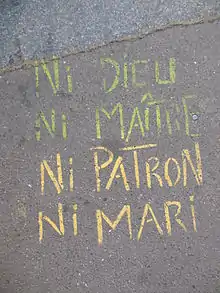 Ni DIEU
Ni MAÎTRE
Ni PATRON
Ni MARi